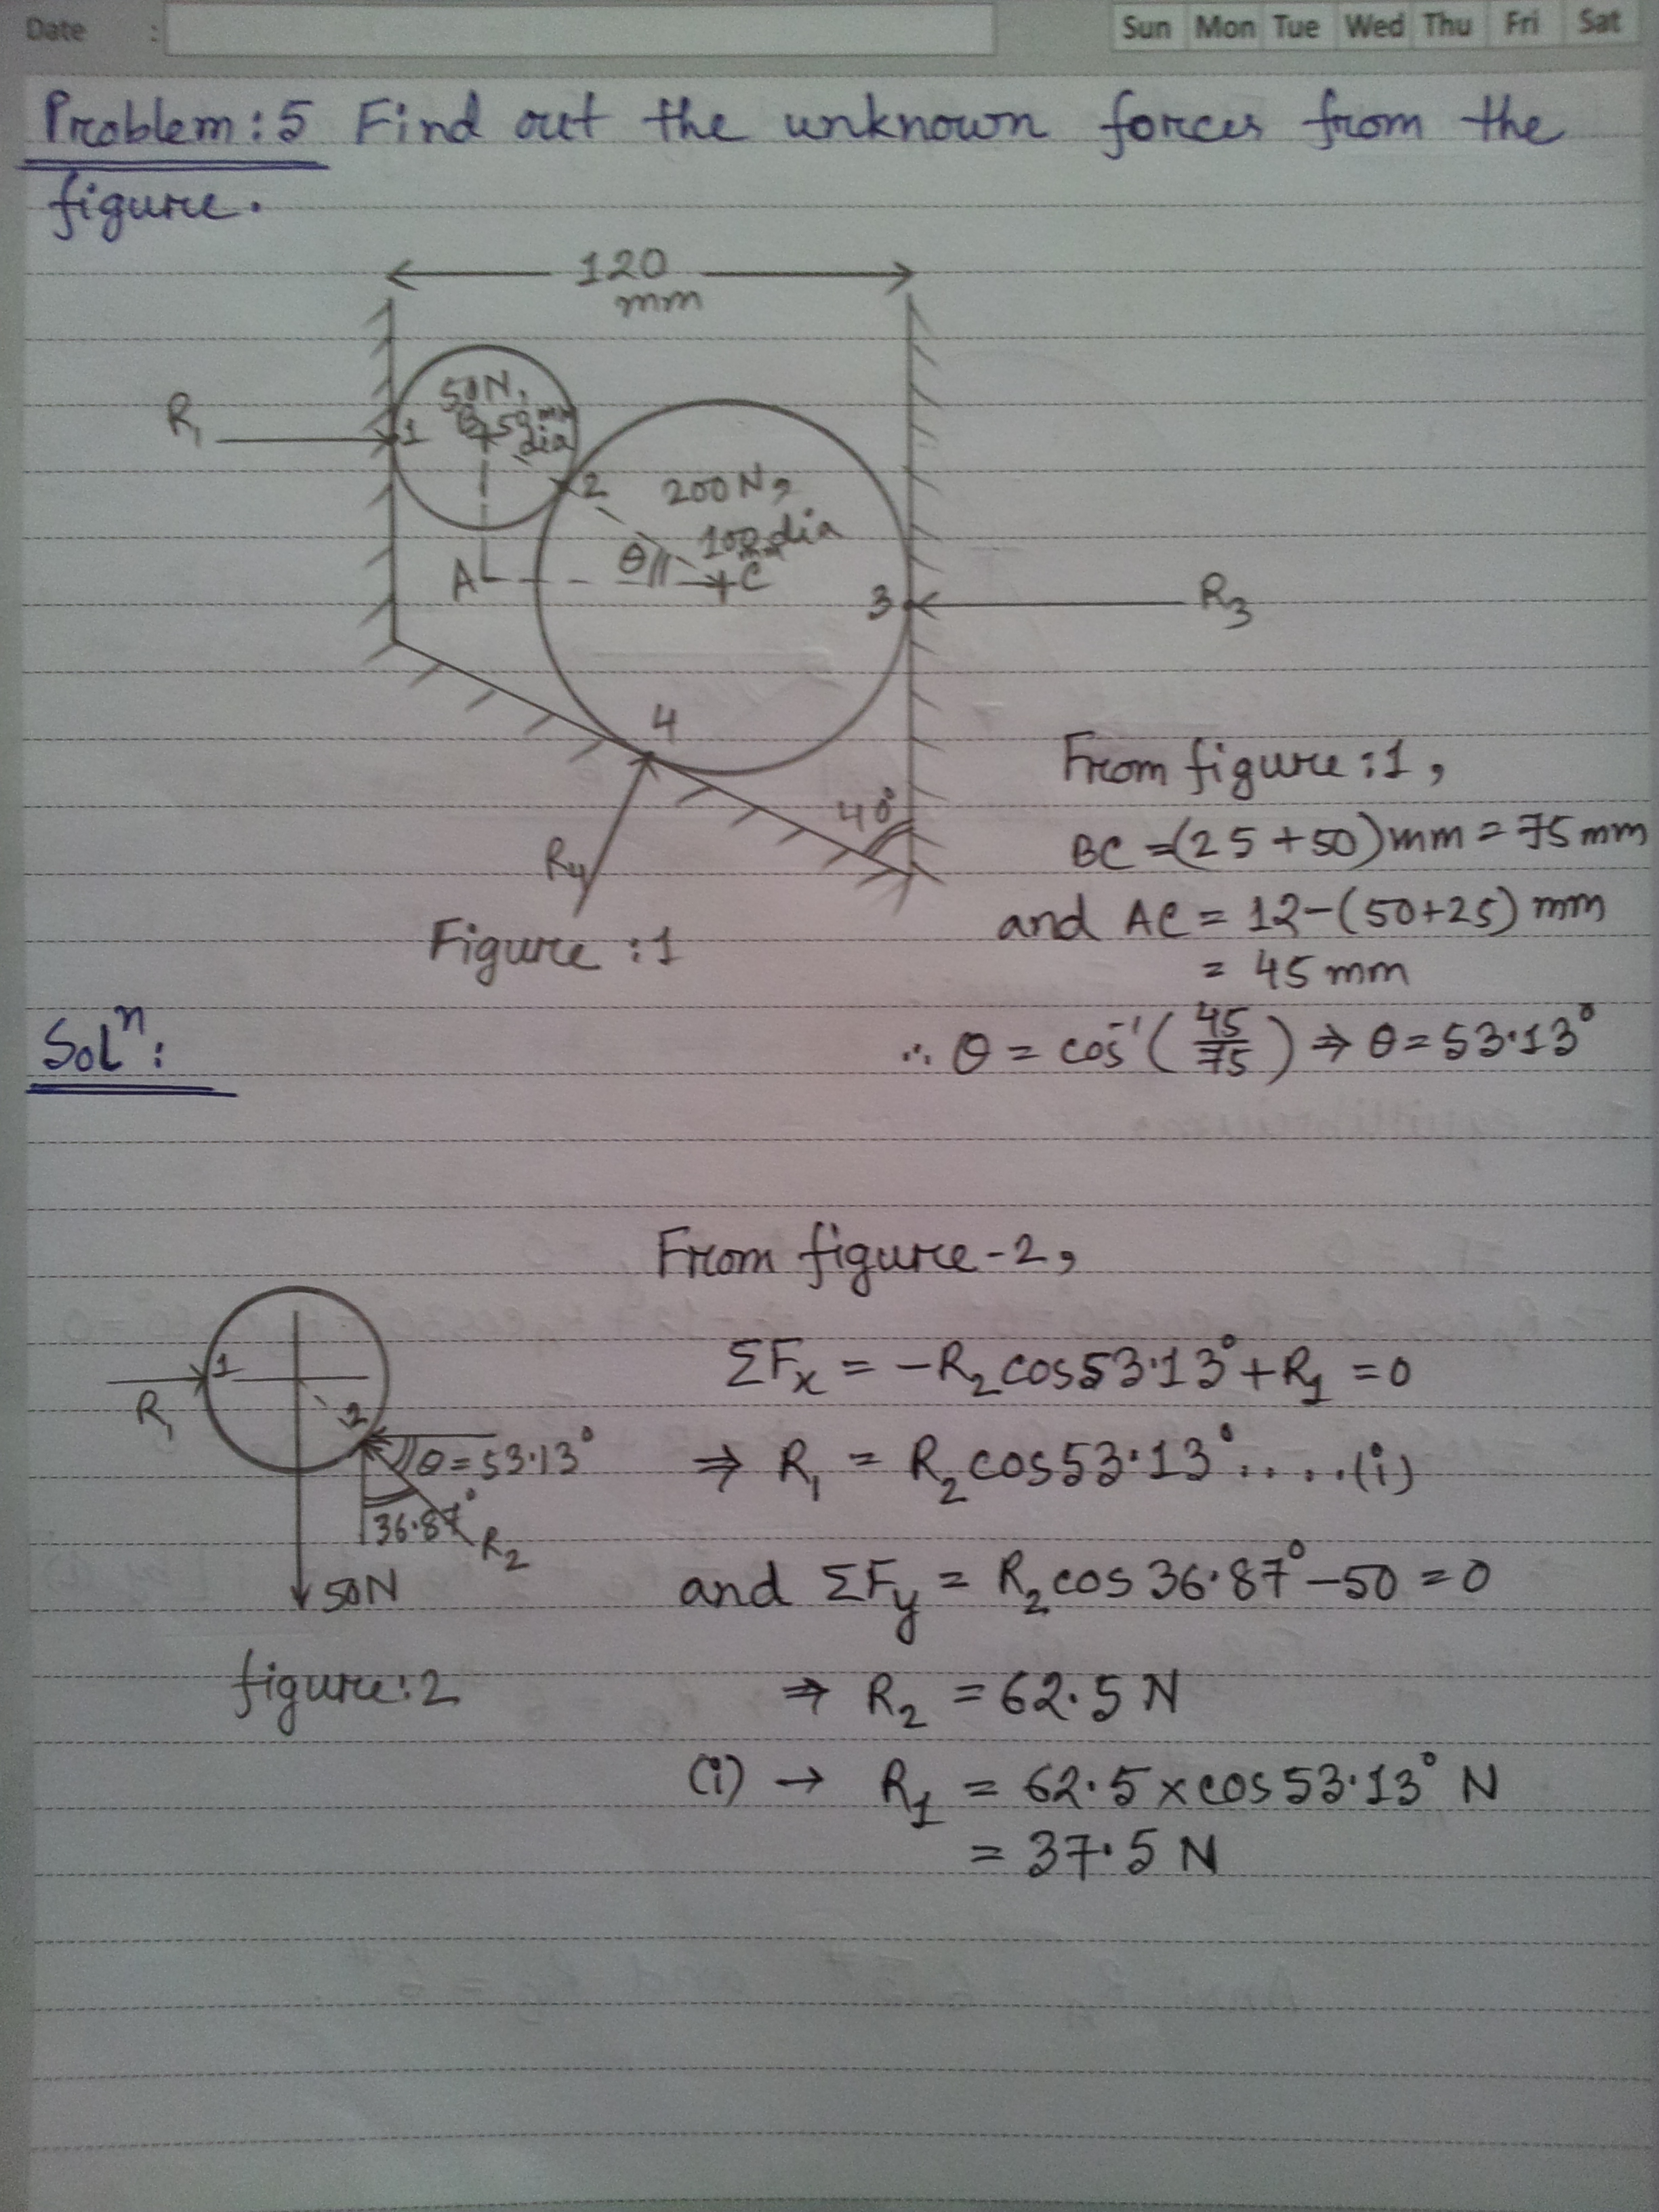 Date :
Sun Mon Tue Wed Thu Fri Sat
Problem:5 Find out the unknown forces from the
figure.
120
mm
R₁
1
50N,
B 50 mm
dia
2
200N,
100 mm dia
θ
A
C
3
R₃
4
40°
R₄
Figure :1
From figure :1,
BC = (25+50) mm = 75 mm
and AC = 12-(50+25) mm
= 45 mm
∴ θ = cos⁻¹ (45/75) ⇒ θ = 53.13°
Solⁿ:
From figure-2,
1
R₁
2
θ = 53.13°
36.87°
R₂
50N
figure:2
ΣFx = -R₂ cos53.13° + R₁ = 0
⇒ R₁ = R₂ cos53.13° ....(i)
and ΣFy = R₂ cos 36.87° - 50 = 0
⇒ R₂ = 62.5 N
(i) → R₁ = 62.5 x cos 53.13° N
= 37.5 N